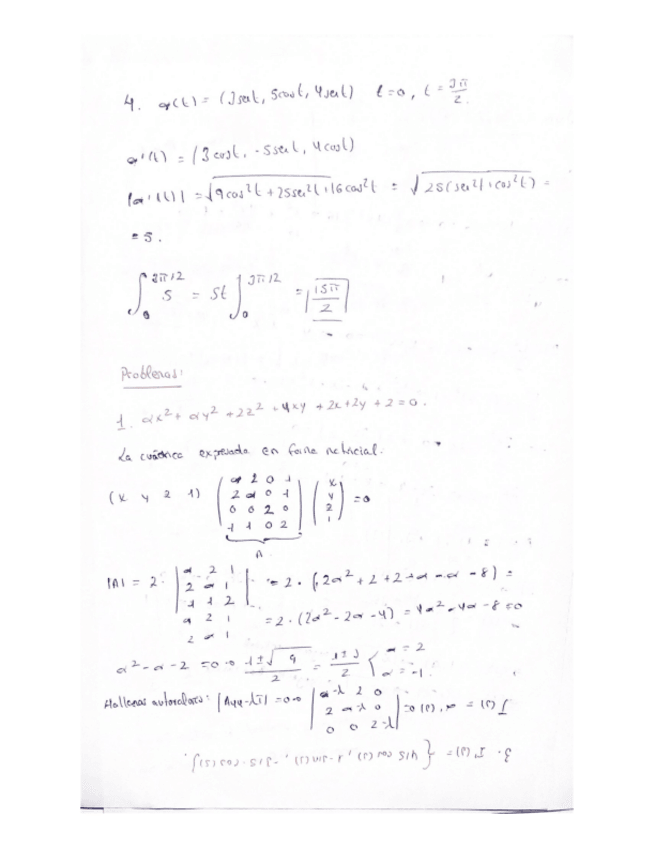 4. α(t) = (3sent, 5cost, 4sent) t=0, t = 3π/2.
α'(t) = (3cost, -5sent, 4cost)
|α'(t)| = √9cos²t + 25sen²t + 16cos²t = √25(sen²t + cos²t) =
= 5.
∫₀^3π/2 5 = 5t ]₀^3π/2 = |15π/2|
Problemas:
1. αx² + αy² + 2z² + 4xy + 2x + 2y + 2 = 0.
La cuádrica expresada en forma matricial.
(x y z 1) (α 2 0 1
2 α 0 1
0 0 2 0
1 1 0 2) (x
y
z
1) = 0
A
|A| = 2 · |α 2 1
2 α 1
1 1 2| = 2 · (2α² + 2 + 2 - α - α - 8) =
α 2 1
2 α 1
= 2 · (2α² - 2α - 4) = 4α² - 4α - 8 = 0
α² - α - 2 = 0 1±√9/2 = 1±3/2 { α = 2
α = -1.
Hallemos autovalores: |A₄₄ - λI| = 0 |α-λ 2 0
2 α-λ 0
0 0 2-λ| = 0